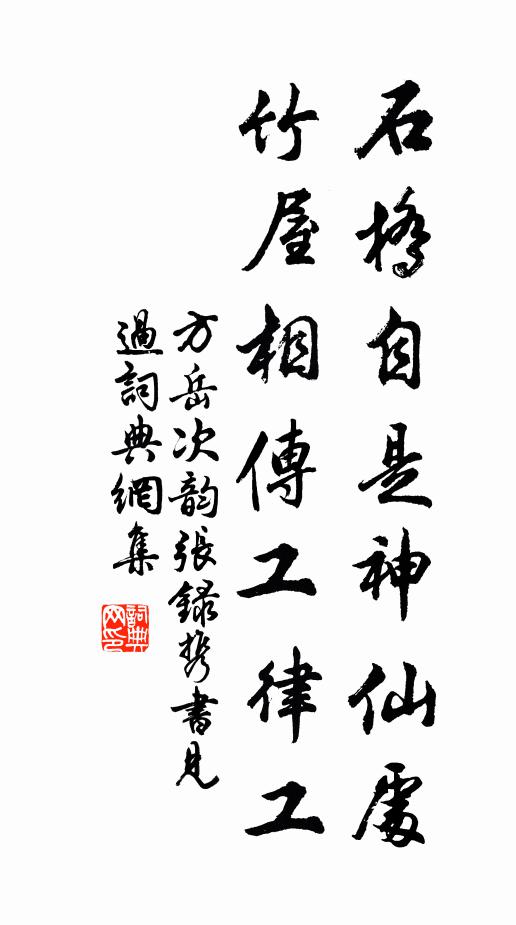 石橋自是神仙處
竹屋相傳工律工
方岳次韵張録携書見
過詞典網集
詞典网印